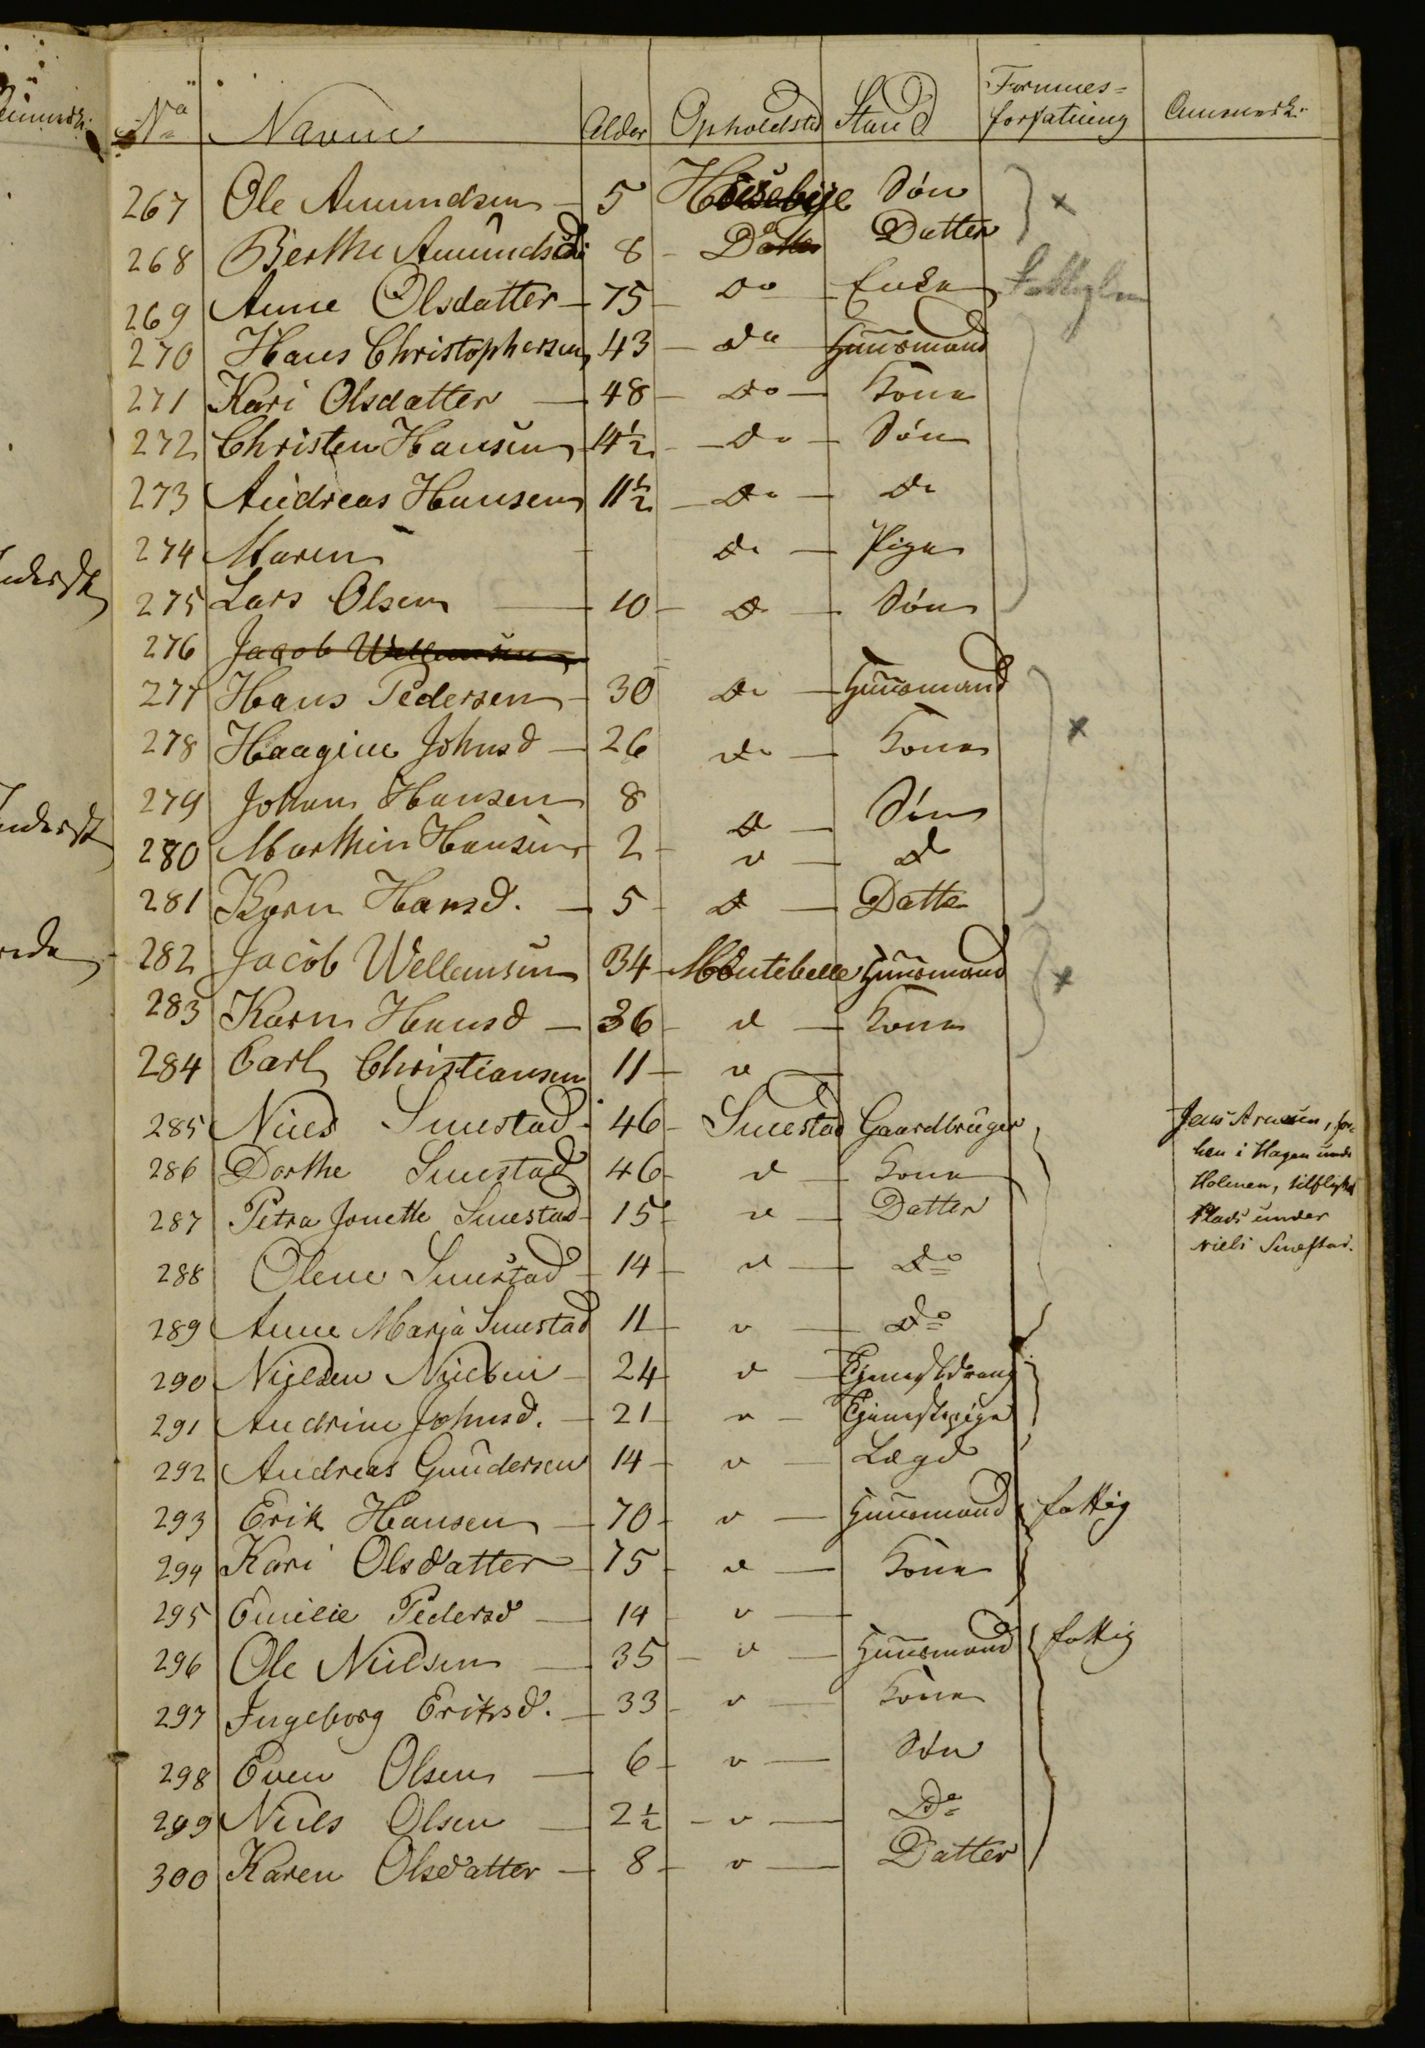 No Navne Alder Opholdsted Stand Formues=forfatning Anmerk:
267 Ole Amundsen 5 Housebye Søn
268 Berthe Amundsd: 8 Do Datter
269 Anne Olsdatter 75 do Enke
270 Hans Christophersen 43 do Huusmand
271 Kari Olsdatter 48 do Kone
272 Christen Hansen 4½ do Søn
273 Andreas Hansen 11½ do do
274 Maren do Pige
275 Lars Olsen 10 do Søn
276 Jacob Wellemsen
277 Hans Pedersen 30 do Huusmand
278 Haagine Johnsd 26 do Kone
279 Johan Hansen 8 do Søn
280 Marthin Hansen 2 do do
281 Karn Hansd. 5 do Datter
282 Jacob Wellemsen 34 Montebelle Huusmand
283 Karn Hansd 36 do Kone
284 Carl Christiansen 11 do
285 Niels Smestad 46 Smestad Gaardbruger
286 Dorthe Smestad 46 do Kone
287 Petra Jonette Smestad 15 do Datter
288 Olene Smestad 14 do do
289 Anne Maria Smestad 11 do do
290 Nielsen Nielsen 24 do Tjenestdreng
291 Andrine Johnsd. 21 do Tjenestepige
292 Andreas Gundersen 14 do Lægd
293 Erik Hansen 70 do Huusmand fattig
294 Kari Olsdatter 75 do Kone
295 Emilie Pedersd 14 do
296 Ole Nielsen 35 do Huusmand fattig
297 Ingeborg Eriksd. 33 do Kone
298 Even Olsen 6 do Søn
299 Niels Olsen 2½ do Do
300 Karen Olsdatter 8 do Datter
Jens Arnesen, for-
hen i Hagen under
Holmen, tilflyttet
Plads under
Niels Smestad.